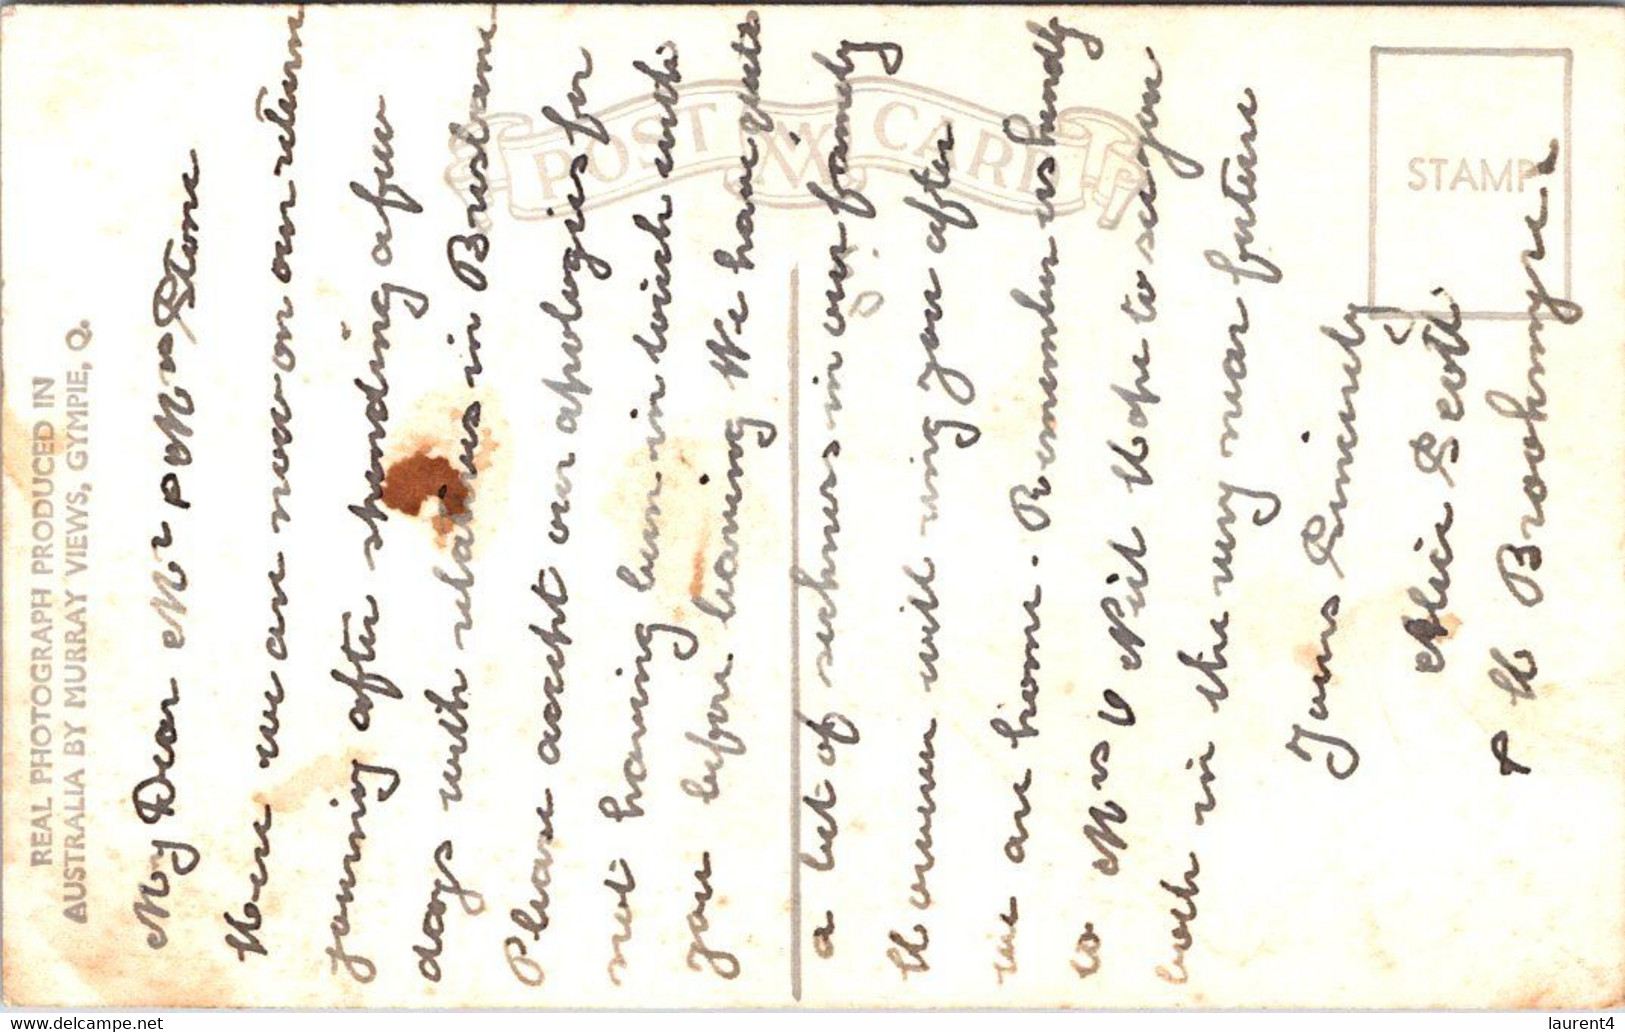 REAL PHOTOGRAPH PRODUCED IN
AUSTRALIA BY MURRAY VIEWS, GYMPIE, Q.
POST CARD
STAMP
My Dear Mr & Mrs Stone
Here we are now on our return
journey after spending a few
days with relatives in Brisbane
Please accept our apologies for
not having been in touch with
you before leaving We have quite
a lot of sickness in our family
However will ring you after
we are home. Remember us kindly
to Mrs V Hope to see you
both in the very near future
Yours Sincerely
Alice Scott
& H Brookmyre
www.delcampe.net
laurent4